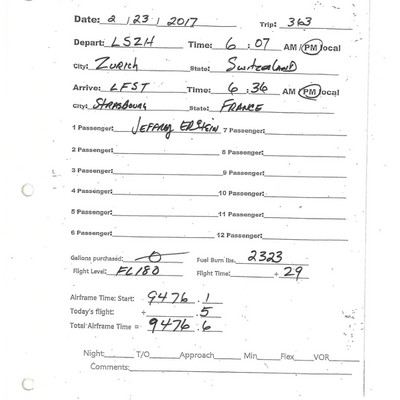 Date: 2 / 23 / 2017 Trip: 363
Depart: LSZH Time: 6 : 07 AM / PM local
City: Zurich State: Switzerland
Arrive: LFST Time: 6 : 36 AM / PM local
City: Strasbourg State: France
1 Passenger: Jeffrey Epstein 7 Passenger:
2 Passenger: 8 Passenger:
3 Passenger: 9 Passenger:
4 Passenger: 10 Passenger:
5 Passenger: 11 Passenger:
6 Passenger: 12 Passenger:
Gallons purchased: 0 Fuel Burn lbs. 2323
Flight Level: FL180 Flight Time: + 29
Airframe Time: Start: 9476 .1
Today's flight: + .5
Total Airframe Time = 9476 .6
Night: T/O Approach Min Flex VOR
Comments: